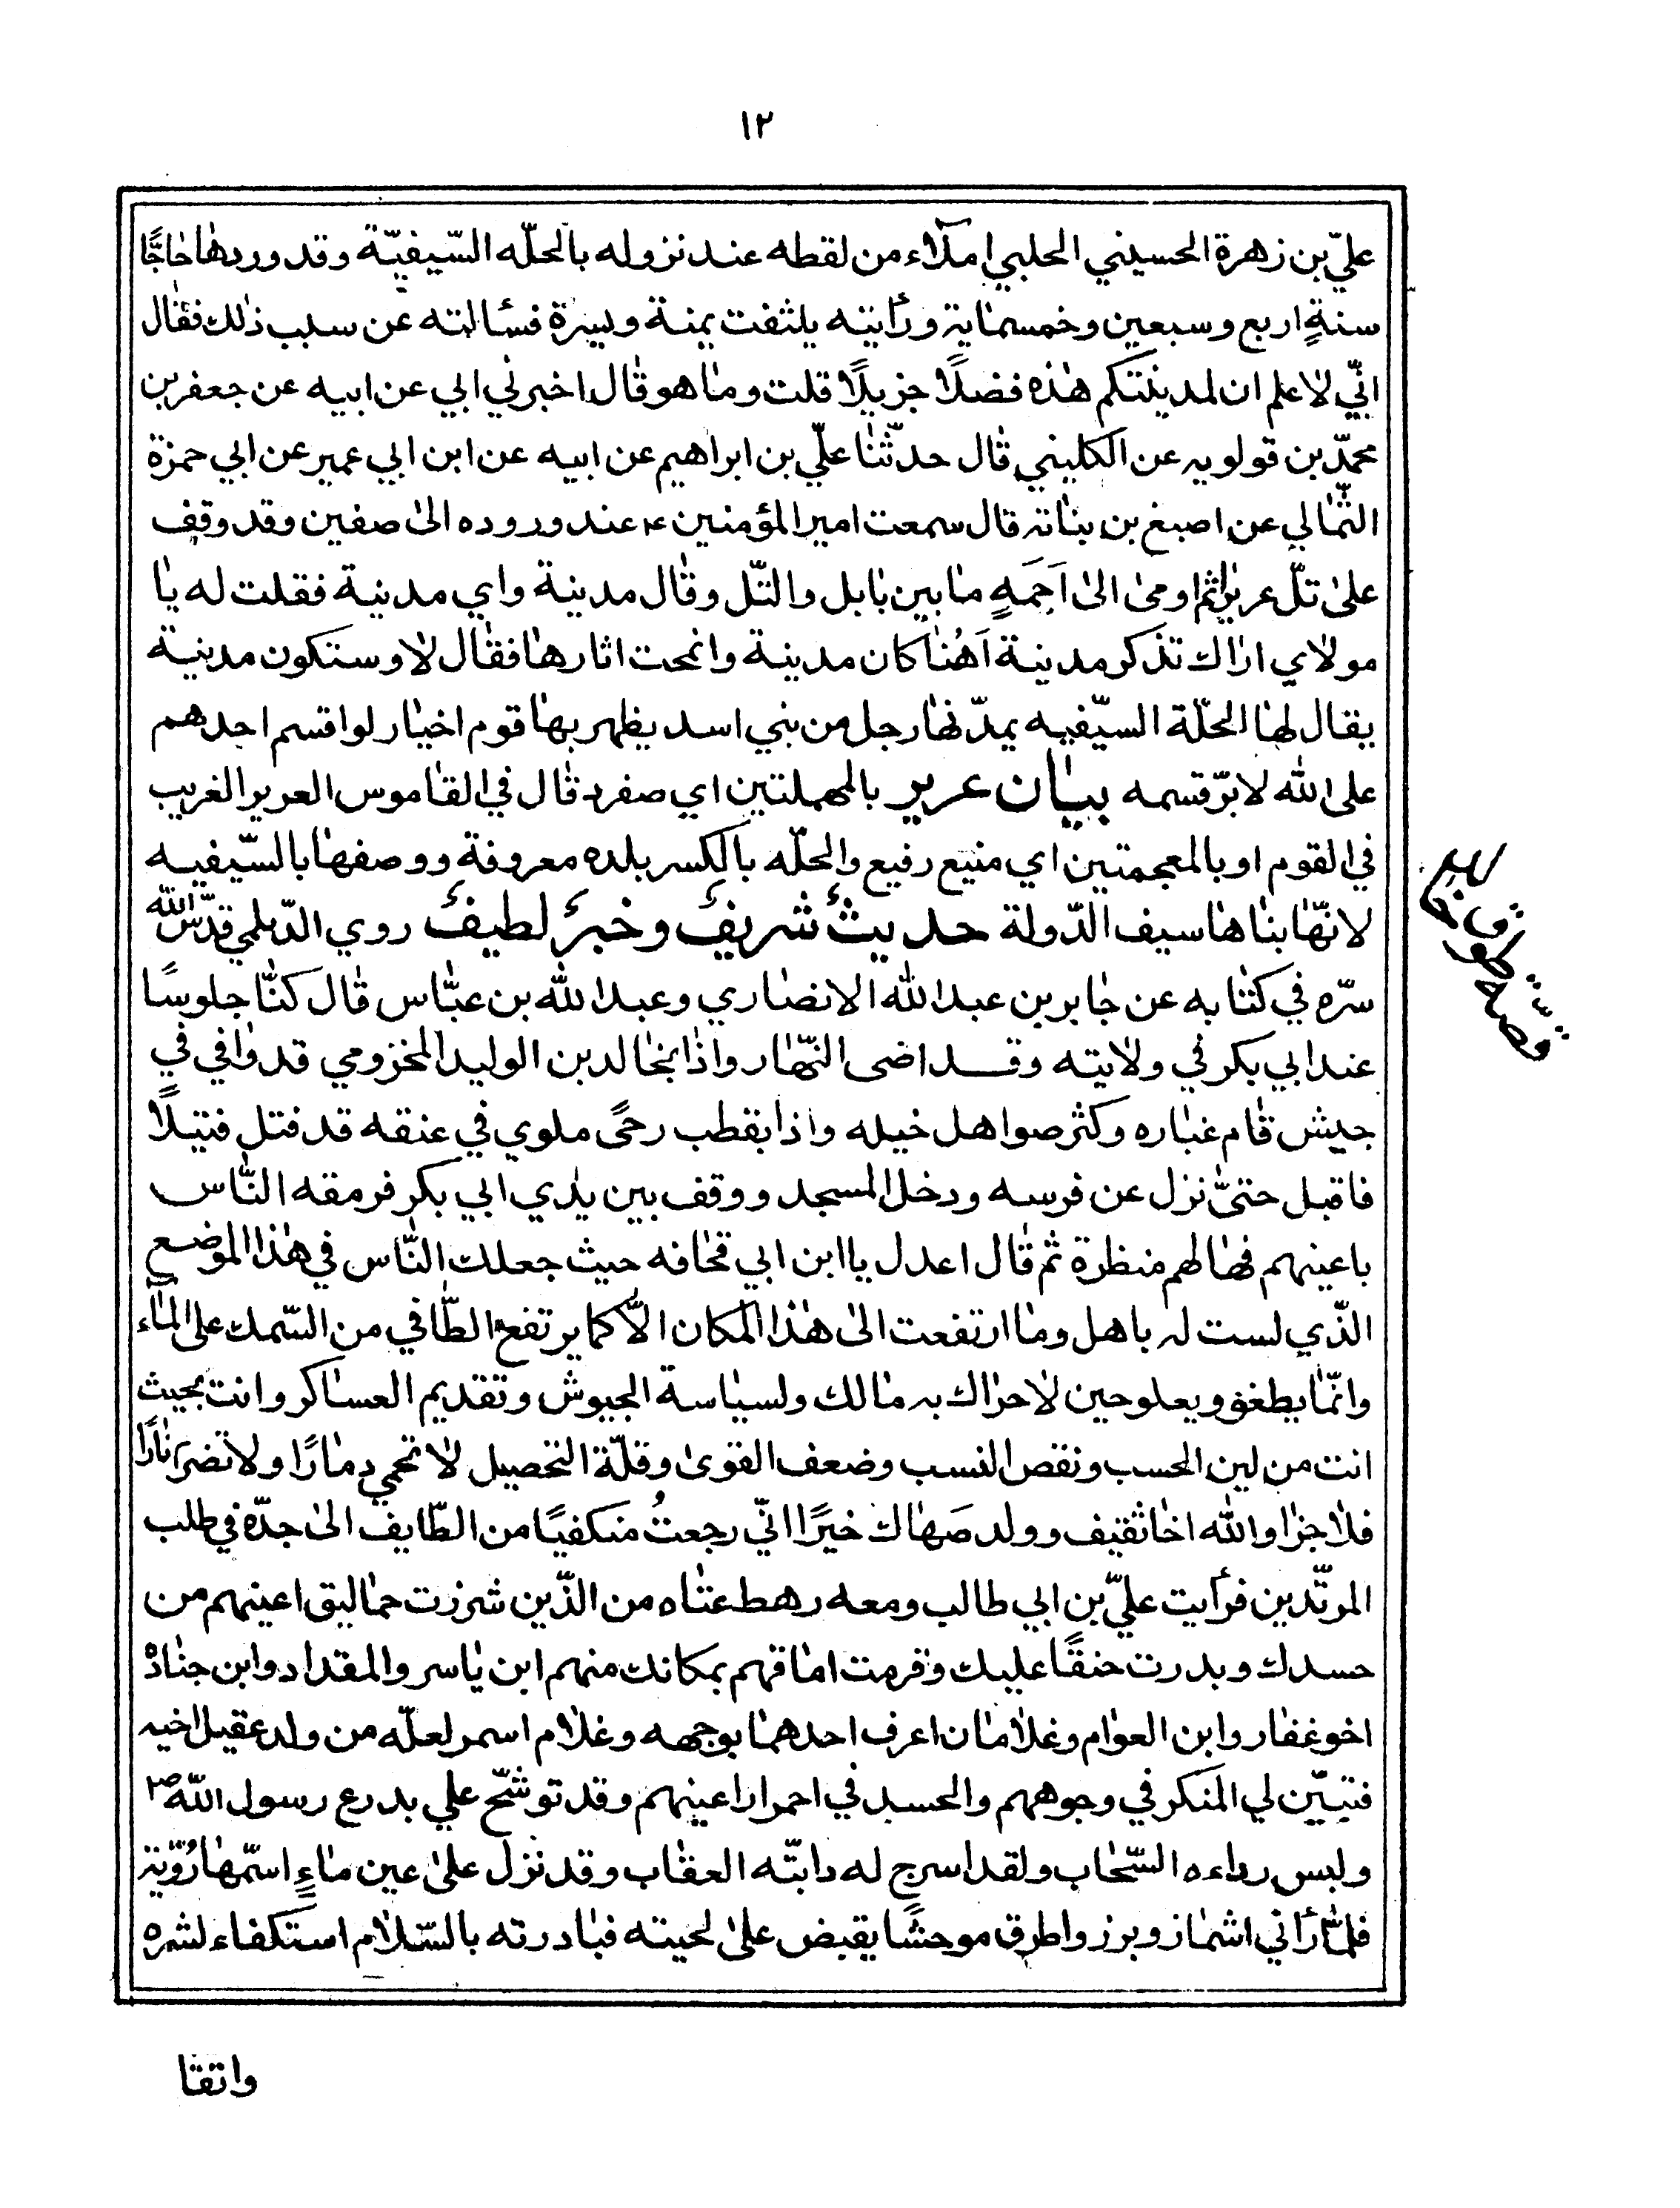 ١٢
عليّ بن زهرة الحسيني الحلبي املآء من لقطه عند نزوله بالحلّه السّيفيّة وقد وردها حاجًّا
سنةٍ اربع وسبعين وخمسماية ورأيته يلتفت يمنة ويسرة فسألته عن سبب ذلك فقال
انّي لاعلم ان لمدينتكم هذه فضلًا جزيلًا قلت وما هو قال اخبرني ابي عن ابيه عن جعفر بن
محمّد بن قولويه عن الكليني قال حدّثنا علّي بن ابراهيم عن ابيه عن ابن ابي عمير عن ابي حمزة
الثّمالي عن اصبغ بن نباته قال سمعت امير المؤمنين ع عند وروده الى صفين وقد وقف
على تلّ عرير ثم اومئ الى اَجَمَهٍ ما بين بابل والتّل وقال مدينة واي مدينة فقلت له يا
مولاي اراك تذكر مدينة اَهُنا كان مدينة وانمحت اثارها فقال لا وستكون مدينة
يقال لها الحلّة السيّفيه يمدّنها رجل من بني اسد يظهر بها قوم اخيار لو اقسم احدهم
على الله لابرّ قسمه بيان عرير بالمهملتين اي مفرد قال في القاموس العرير الغريب
في القوم او بالمعجمتين اي منيع رفيع والحلّه بالكسر بلده معروفة ووصفها بالسّيفيه
لانّها بناها سيف الدّولة حديثٌ شريفٌ وخبرٌ لطيفٌ روي الدّيلمي قدّس الله
سرّه في كتابه عن جابر بن عبد الله الانصاري وعبد الله بن عبّاس قال كنّا جلوسًا
عند ابي بكر في ولايته وقد اضحى النّهار واذا بخالد بن الوليد المخزومي قد وافى في
جيش قام غباره وكثر صواهل خيله واذا بقطب رحًى ملوي في عنقه قد فتل فتيلًا
فاقبل حتىّ نزل عن فرسه ودخل المسجد ووقف بين يدي ابي بكر فرمقه النّاس
باعينهم فهالهم منظرة ثم قال اعدل يا ابن ابي قحافه حيث جعلك النّاس في هذا الموضع
الذّي لست له باهل وما ارتفعت الى هذا المكان الاّ كما يرتفع الطّافي من السّمك على المآء
وانّما يطغو ويعلو حين لا حراك به مالك ولسياسة الجيوش وتقديم العساكر وانت بحيث
انت من لين الحسب ونقص النسب وضعف القوى وقلّة التحصيل لا تحمي دمارًا ولا تضرم نارًا
فلا جزا والله اخا ثقيف وولد صَهاك خيرًا انّي رجعتُ منكفيًا من الطّايف الى جدّه في طلب
المرتّدين فرأيت عليّ بن ابي طالب ومعه رهط عتاه من الذّين شرزت حماليق اعينهم من
حسدك وبدرت حنقًا عليك وقرمت اماقهم بمكانك منهم ابن ياسر والمقداد وابن جناده
اخو غفار وابن العوام وغلامان اعرف احدهما بوجهه وغلام اسمر لعلّه من ولد عقيل اخيه
فتبيّن لي المنكر في وجوههم والحسد في احمرار اعينهم وقد توشّح علي بدرع رسول الله ص
ولبس رداءه السّحاب ولقد اسرج له دابتّه العقاب وقد نزل على عين ماءٍ اسّمها رُوّية
فلمّا رأني اشماز وبرز واطرق موحشًا يقبض على لحيته فبادرته بالسّلام استكفاء لشره
قصّة طوق خالد
واتقا